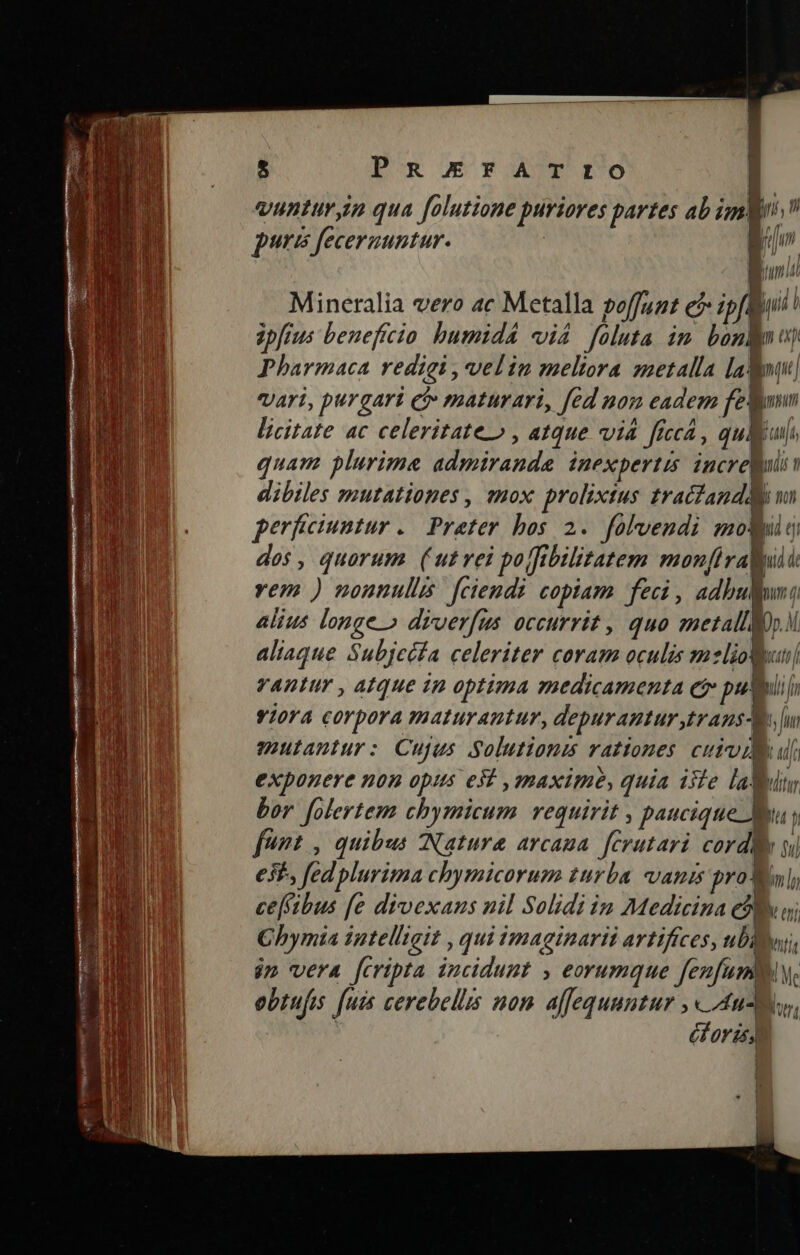 8 PRÆFATIO
vuntur, in qua ſolutione puriores partes ab im
puris ſecernuntur.
Mineralia vero ac Metalla poſſunt & ipſ
ipſius beneficio humidâ viâ ſoluta in bon
Pharmaca redigi, vel in meliora metalla la
vari, purgari & maturari, ſed non eadem fe
licitate ac celeritate, atque viâ ſiccâ, qu
quam plurimæ admirandæ inexpertis incre
dibiles mutationes, mox prolixius tractandæ
perficiuntur. Præter hos 2. ſolvendi mo
dos, quorum (ut rei poſſibilitatem monſtra
rem) nonnullis ſciendi copiam feci, adhu
alius longe diverſus occurrit, quo metall
aliaque Subjecta celeriter coram oculis melio
rantur, atque in optima medicamenta & pu
riora corpora maturantur, depurantur, trans-
mutantur: Cujus Solutionis rationes cuivi
exponere non opus eſt, maximè, quia iſte la
bor ſolertem chymicum requirit, paucique
ſunt, quibus Naturæ arcana ſcrutari cordi
eſt, ſed plurima chymicorum turba vanis pro
ceſſibus ſe divexans nil Solidi in Medicina &
Chymia intelligit, qui imaginarii artifices, ubi
in vera ſcripta incidunt, eorumque ſenſum
obtuſis ſuis cerebellis non aſſequuntur, Au-
ctoris